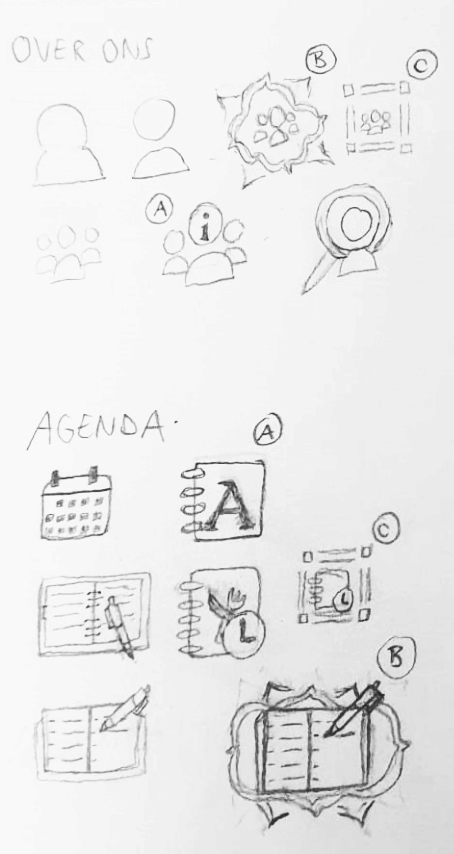 OVER ONS
B
C
A
i
AGENDA.
A
A
C
L
L
B